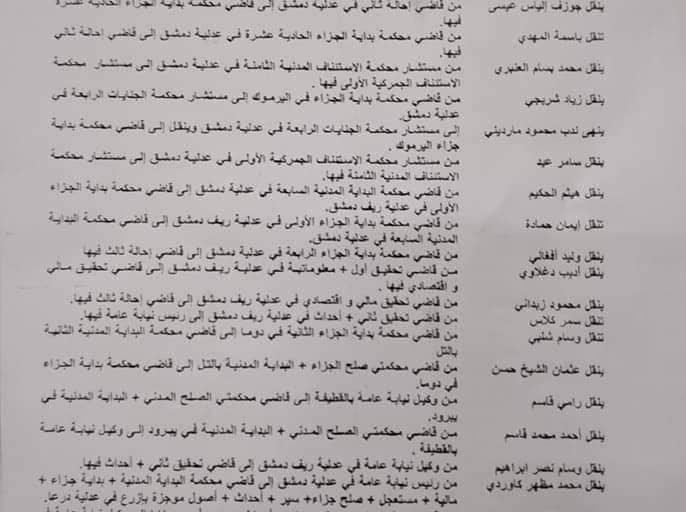 ينقل جوزف إلياس عيسى من قاضي إحالة ثاني في عدلية دمشق إلى قاضي محكمة بداية الجزاء الحادية عشرة
فيها.
تنقل باسمة المهدي من قاضي محكمة بداية الجزاء الحادية عشرة في عدلية دمشق إلى قاضي إحالة ثاني
فيها.
ينقل محمد بسام العنبري من مستشار محكمة الاستئناف المدنية الثامنة في عدلية دمشق إلى مستشار محكمة
الاستئناف الجمركية الأولى فيها .
ينقل زياد شريجي من قاضي محكمة بداية الجزاء في اليرموك إلى مستشار محكمة الجنايات الرابعة في
عدلية دمشق.
ينهى ندب محمود مارديني إلى مستشار محكمة الجنايات الرابعة في عدلية دمشق وينقل إلى قاضي محكمة بداية
جزاء اليرموك .
ينقل سامر عيد من مستشار محكمة الاستئناف الجمركية الأولى في عدلية دمشق إلى مستشار محكمة
الاستئناف المدنية الثامنة فيها.
ينقل هيثم الحكيم من قاضي محكمة البداية المدنية السابعة في عدلية دمشق إلى قاضي محكمة بداية الجزاء
الأولى في عدلية ريف دمشق.
تنقل إيمان حمادة من قاضي محكمة بداية الجزاء الأولى في عدلية ريف دمشق إلى قاضي محكمة البداية
المدنية السابعة في عدلية دمشق.
ينقل وليد أفغالي من قاضي محكمة بداية الجزاء الرابعة في عدلية دمشق إلى قاضي إحالة ثالث فيها
ينقل أديب دغلاوي من قاضي تحقيق أول + معلوماتية في عدلية ريف دمشق إلى قاضي تحقيق مالي
و اقتصادي فيها .
ينقل محمود زيداني من قاضي تحقيق مالي و اقتصادي في عدلية ريف دمشق إلى قاضي إحالة ثالث فيها.
تنقل سمر كلاس من قاضي تحقيق ثاني + أحداث في عدلية ريف دمشق إلى رئيس نيابة عامة فيها.
تنقل وسام شلبي من قاضي محكمة بداية الجزاء الثانية في دوما إلى قاضي محكمة البداية المدنية الثانية
بالتل
ينقل عثمان الشيخ حسن من قاضي محكمتي صلح الجزاء + البداية المدنية بالتل إلى قاضي محكمة بداية الجزاء
في دوما.
ينقل رامي قاسم من وكيل نيابة عامة بالقطيفة إلى قاضي محكمتي الصلح المدني + البداية المدنية في
يبرود.
ينقل أحمد محمد قاسم من قاضي محكمتي الصلح المدني + البداية المدنية في يبرود إلى وكيل نيابة عامة
بالقطيفة .
ينقل وسام نصر ابراهيم من وكيل نيابة عامة في عدلية ريف دمشق إلى قاضي تحقيق ثاني + أحداث فيها.
ينقل محمد مظهر كاوردي من رئيس نيابة عامة في عدلية دمشق إلى قاضي محكمة البداية المدنية + بداية جزاء +
مالية + مستعجل + صلح جزاء+ سير + أحداث + أصول موجزة بإزرع في عدلية درعا.